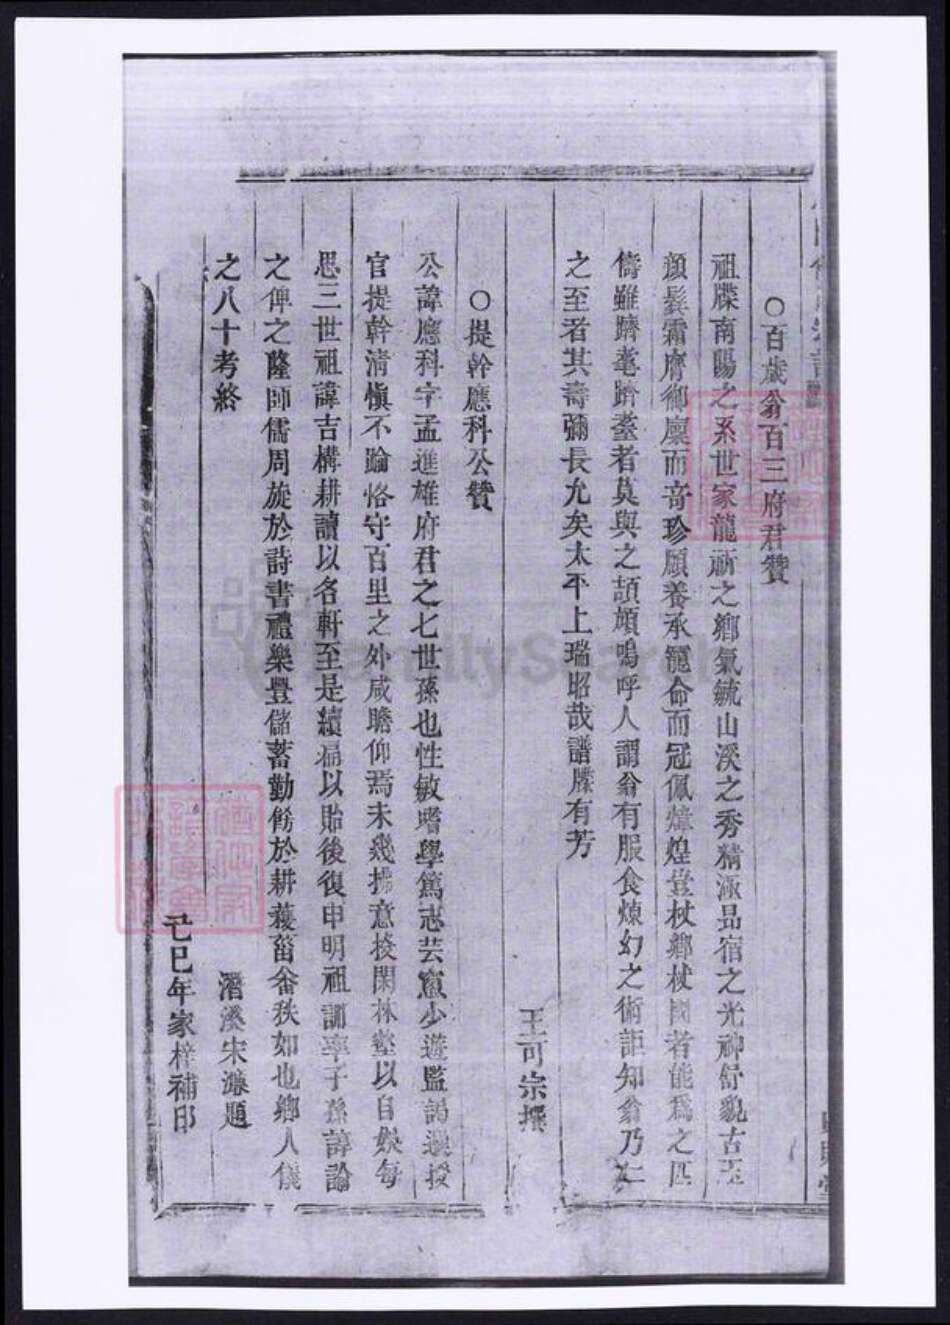 ○百歲翁百三府君贊
祖牒南陽之系世家龍祈之鄉氣毓山溪之秀精涵品宿之光神舒貌古玉
顏鬢霜膚御廩而奇珍願養承寵命而冠佩煒煌豈杖鄉杖國者能爲之匹
儔雖躋耄躋耋者莫與之頡頏嗚呼人謂翁有服食煉幻之術詎知翁乃仁
之至者其壽彌長允矣太平上瑞昭哉譜牒有芳
王可宗撰
○提幹應科公贊
公諱應科字孟進雄府君之七世孫也性敏嗜學篤志芸窻少遊監謁選授
官提幹清愼不踰恪守百里之外咸瞻仰焉未幾拂意投閑林壑以自娛每
思三世祖諱吉構耕讀以名軒至是續扁以貽後復申明祖訓率子孫諄諭
之俾之隆師儒周旋於詩書禮樂豐儲蓄勤餙於耕穫菑畬秩如也鄉人儀
之八十考終
潛溪宋濂題
己巳年家梓補印